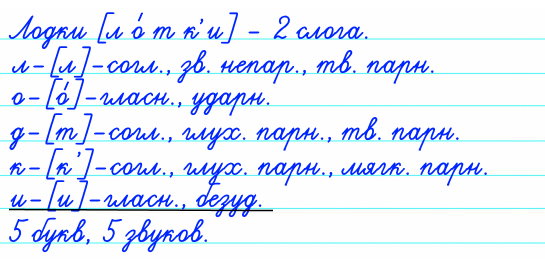 Лодки [л о́ т к' и] - 2 слога.
л-[л]-согл., зв. непар., тв. парн.
о-[о́]-гласн., ударн.
д-[т]-согл., глух. парн., тв. парн.
к-[к']-согл., глух. парн., мягк. парн.
и-[и]-гласн., безуд.
5 букв, 5 звуков.